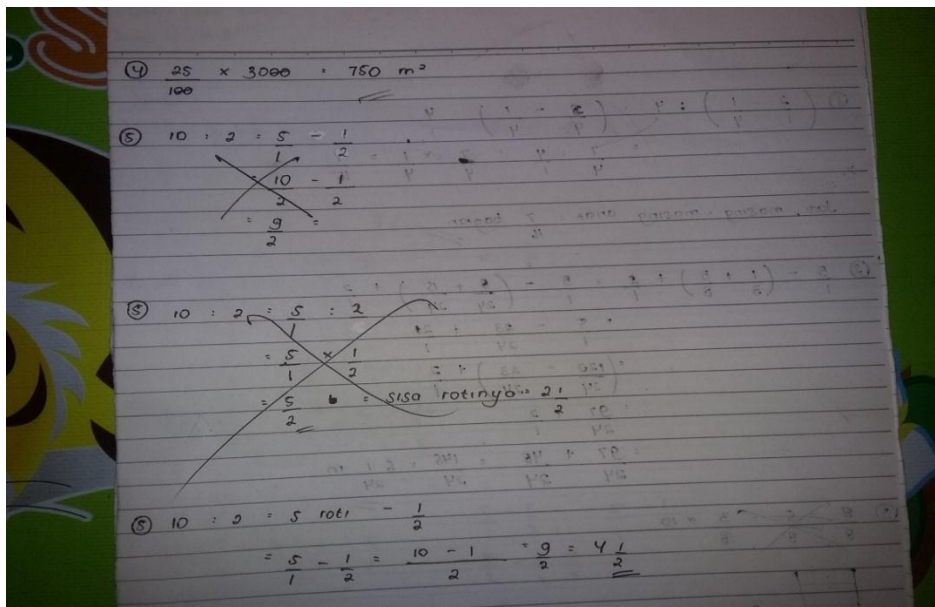 ④ 25/100 × 3000 = 750 m²
⑤ 10 : 2 = 5/1 - 1/2
= 10/2 - 1/2
= 9/2 =
⑤ 10 : 2 = 5/1 : 2
= 5/1 × 1/2
= 5/2 = sisa rotinya = 2 1/2
⑤ 10 : 2 = 5 roti - 1/2
= 5/1 - 1/2 = 10 - 1/2 = 9/2 = 4 1/2